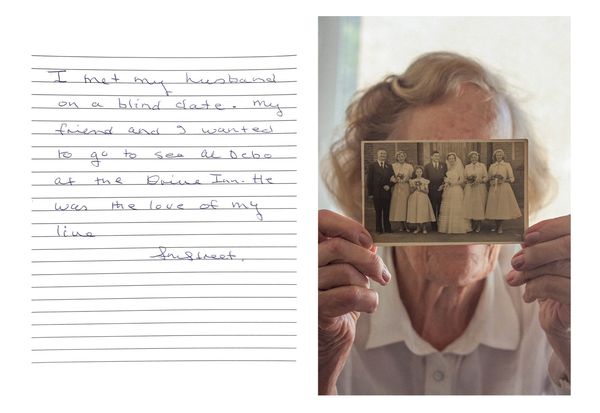 I met my husband
on a blind date. My
friend and I wanted
to go to see al Debo
at the Drive Inn. He
was the love of my
live